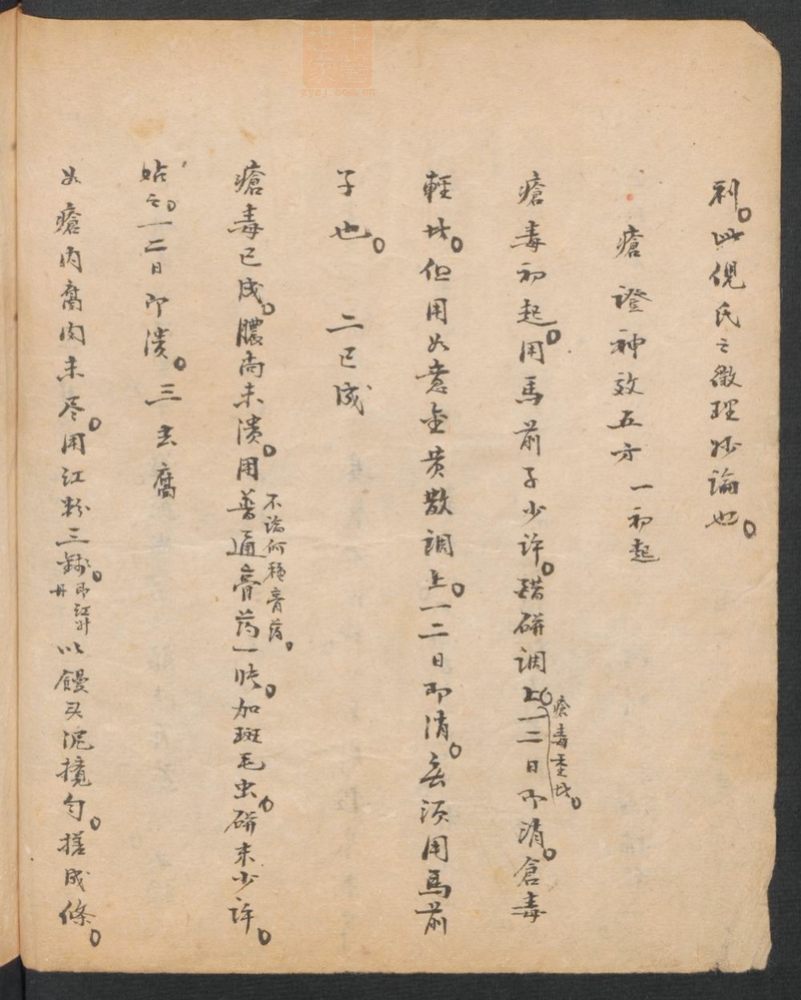 利。此倪氏之徵理妙論也。
瘡證神效五方 一初起
瘡毒初起。用馬前子少許。醋研調上。一二日即消。倉毒
瘡毒重此。
輕此。但用如意金黃散調上。一二日即消。無須用馬前
子也。 二已成
瘡毒已成。膿尚未潰。用普通膏药一帖。加斑毛虫。研末少許。
不論何種膏药。
帖之。一二日即潰。三去腐
如瘡內腐肉未尽。用江粉三錢。以饅头泥搗勻。搓成條。
即紅升丹